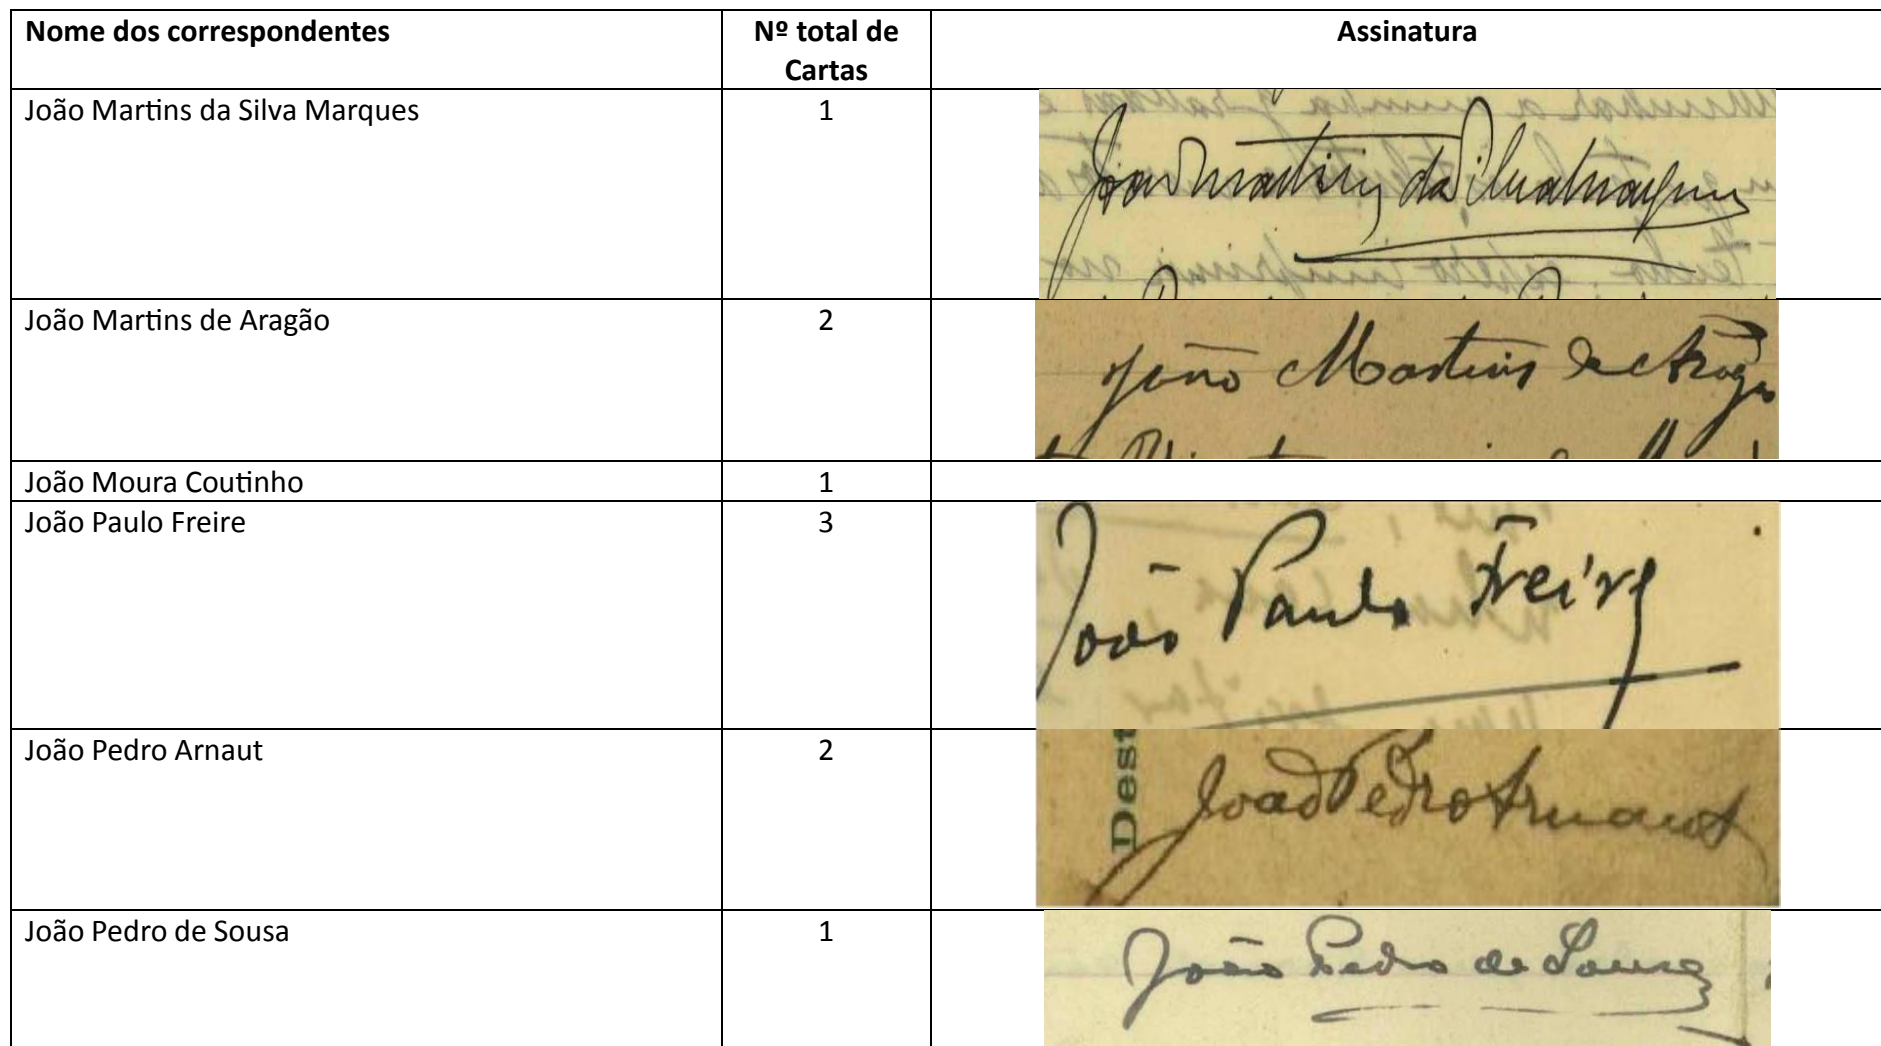 Nome dos correspondentes
Nº total de
Cartas
Assinatura
João Martins da Silva Marques
1
João Martins da Silva Marques
João Martins de Aragão
2
João Martins de Aragão
João Moura Coutinho
1
João Paulo Freire
3
João Paulo Freire
João Pedro Arnaut
2
Dest
João Pedro Arnaut
João Pedro de Sousa
1
João Pedro de Sousa